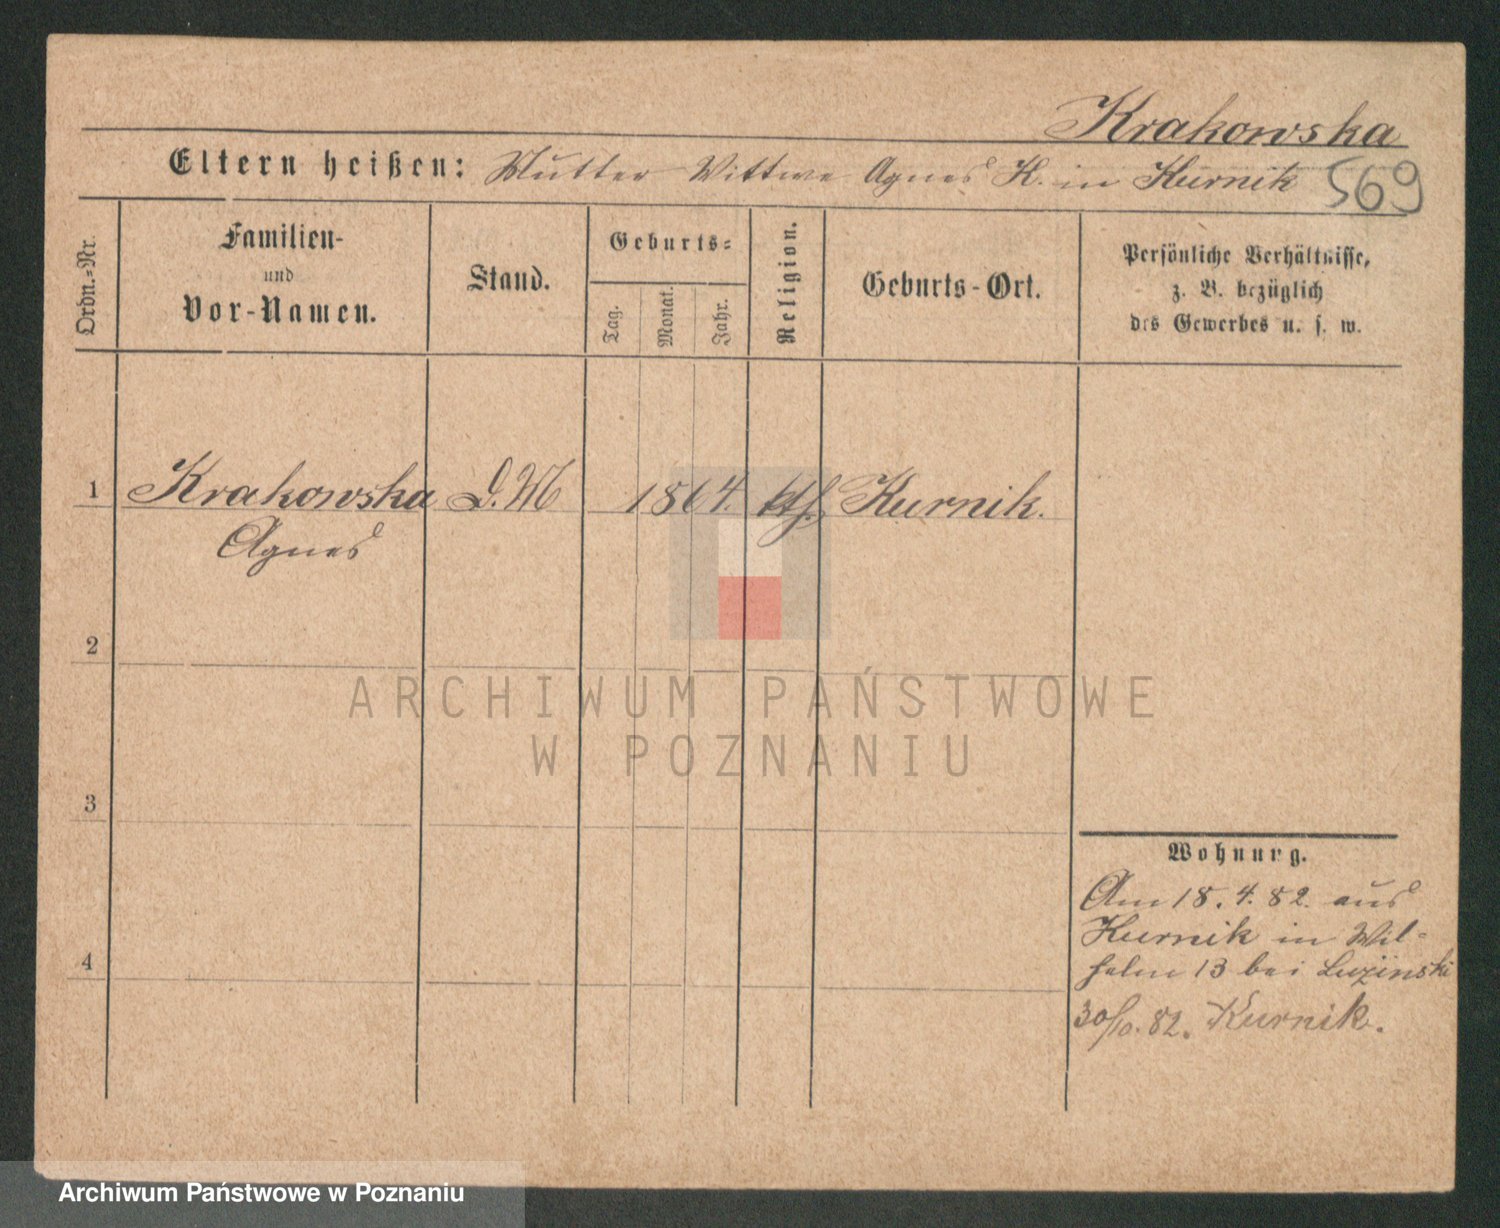 Krakowska
Eltern heißen: Mutter Wittwe Agnes K. in Kurnik 569
Ordn.=Nr.
Familien-
und
Vor-Namen.
Stand.
Geburts=
Tag.
Monat.
Jahr.
Religion.
Geburts-Ort.
Persönliche Verhältnisse,
z. B. bezüglich
des Gewerbes u. s. w.
1 Krakowska D.M 1864. kth. Kurnik.
Agnes
2
3
4
Wohnung.
Am 18. 4. 82. aus
Kurnik in Wil-
helm 13 bei Luzinski
30/10. 82. Kurnik.
ARCHIWUM PAŃSTWOWE
W POZNANIU
Archiwum Państwowe w Poznaniu